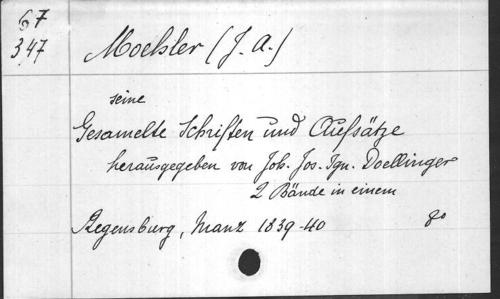 67
347
Moehler (J. A.)
seine
Gesamelte Schriften und Aufsätze
herausgegeben von Joh. Jos. Ign. Doellinger
2 Bände in einem
Regensburg, Manz 1839-40 8o